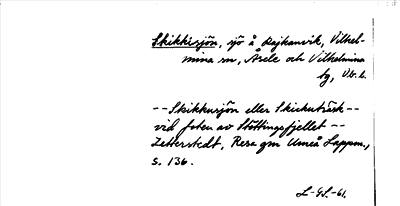 Skikkisjön, sjö å Rajkanvik, Vilhel-
mina sn, Åsele och Vilhelmina
tg, Vb. l.
-- Skikkusjön eller Skickuträsk --
vid foten av Stöttingsfjellet --
Zetterstedt, Resa gm Umeå Lappm.,
s. 136.
L-GL.-61.